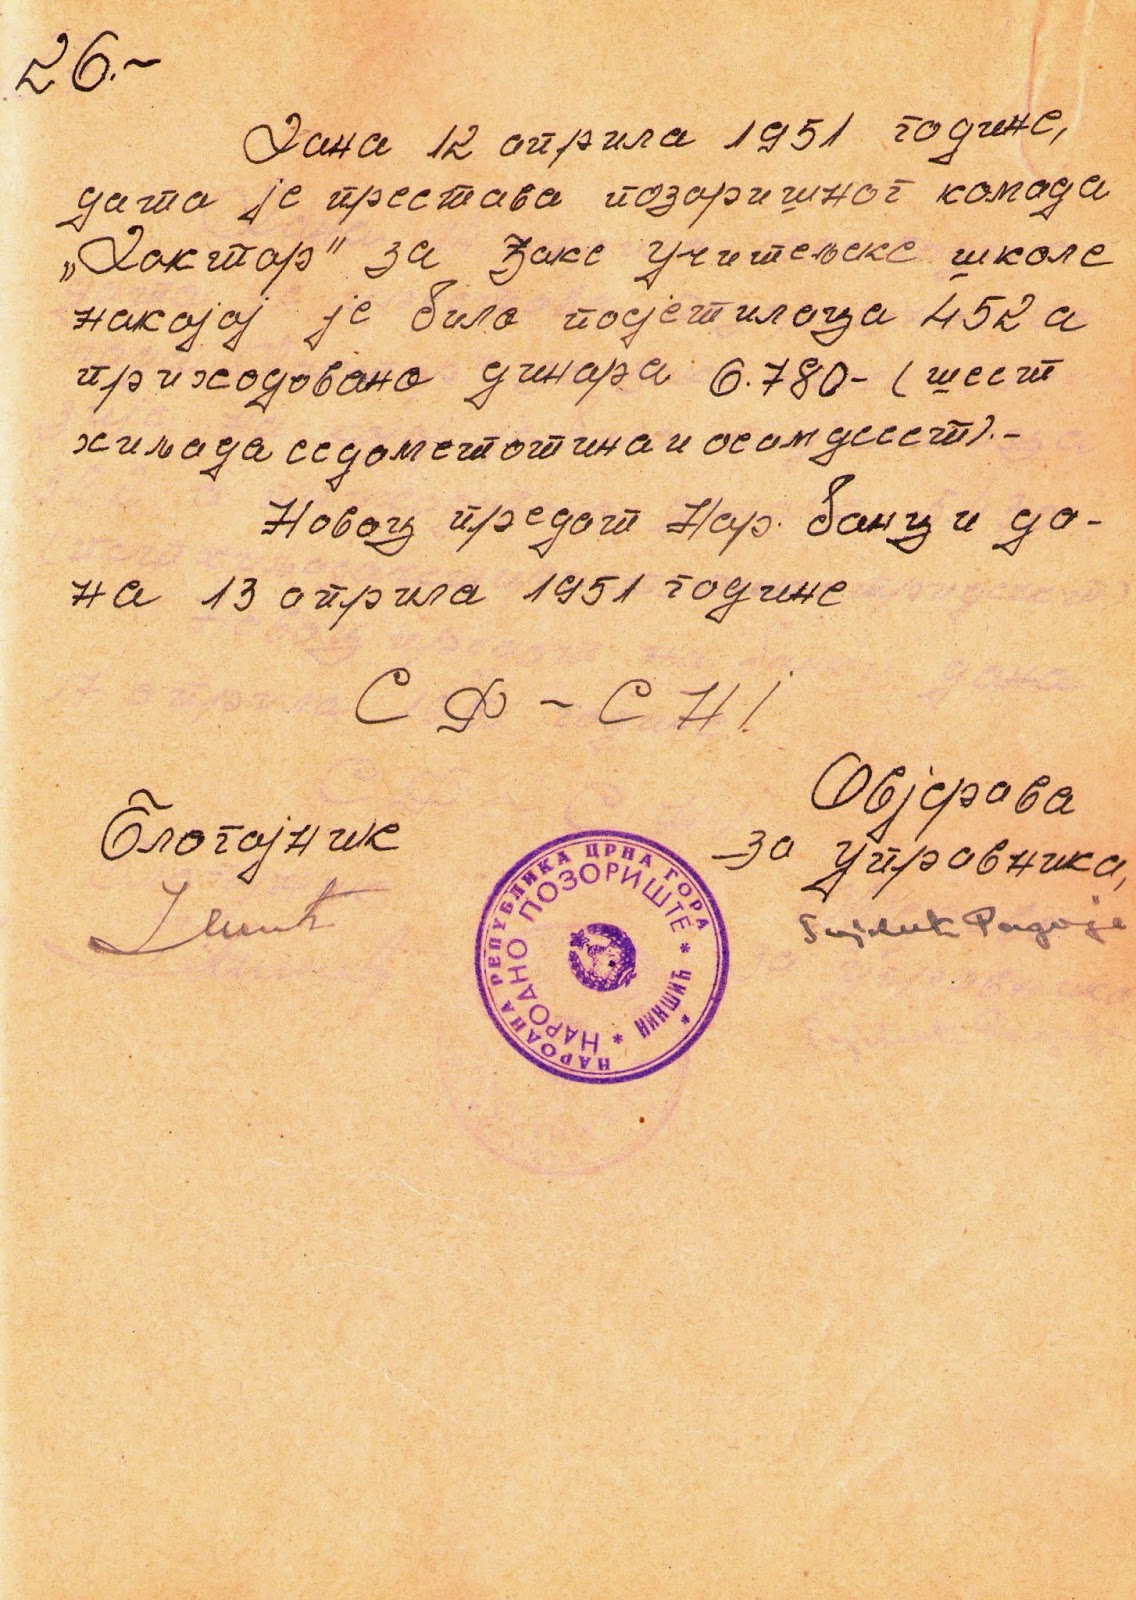 26.-
Дана 12 априла 1951 године,
дата је престава позоришног комада
„Доктор" за ђаке Учитељске школе
на којој је било подјетилаца 452 а
приходовано динара 6.780- (шест
хиљада седомстотина и осамдесет).-
Новац предат Нар. банци да-
на 13 априла 1951 године
СФ-СН!
Благајник
Овјерава
за управника,
НАРОДНА РЕПУБЛИКА ЦРНА ГОРА
НАРОДНО ПОЗОРИШТЕ
* НИКШИЋ *